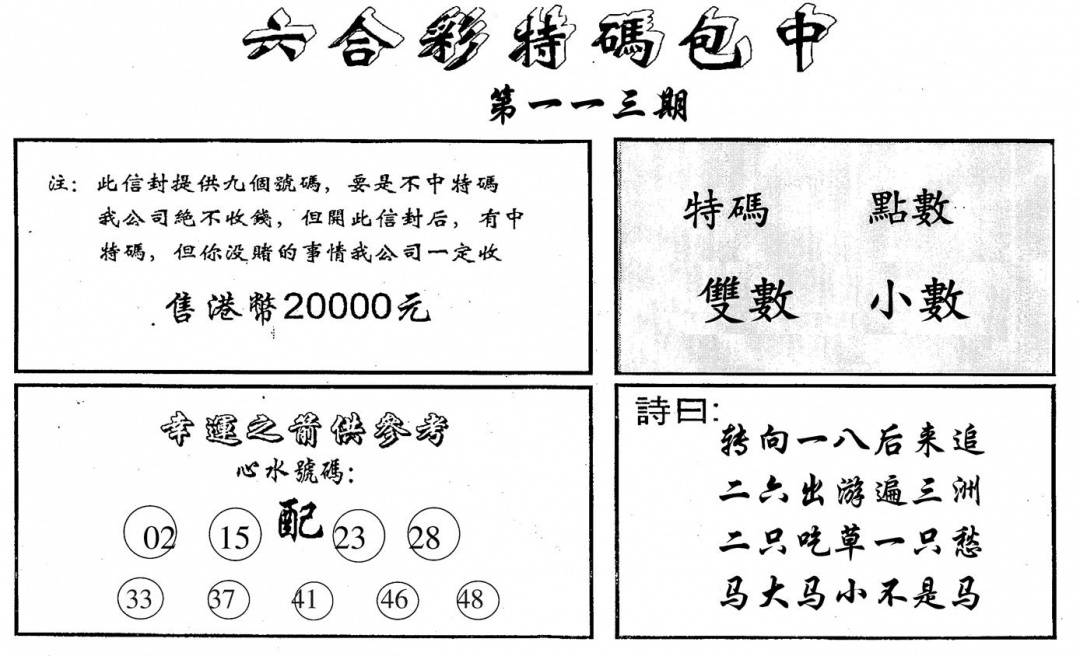 六合彩特碼包中
第一一三期
注：此信封提供九個號碼，要是不中特碼
我公司絶不收錢，但開此信封后，有中
特碼，但你没賭的事情我公司一定收
售港幣20000元
特碼 點數
雙數 小數
幸運之箭供參考
心水號碼：
02 15 配 23 28
33 37 41 46 48
詩曰：
转向一八后来追
二六出游遍三洲
二只吃草一只愁
马大马小不是马